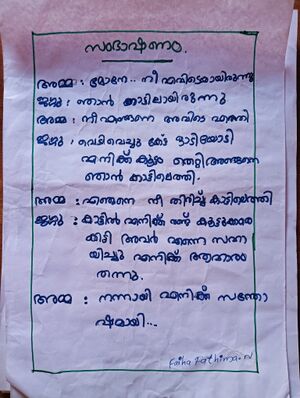 സംഭാഷണം.
അമ്മ : മോനേ... നീ എവിടെയായിരുന്നു
ജഗ്ഗു : ഞാൻ കാട്ടിലായിരുന്നു
അമ്മ : നീ എങ്ങനെ അവിടെ എത്തി
ജഗ്ഗു : വെടിവെച്ചു കേട്ട് ഓടിയോടി
എനിക്ക് കൂട്ടം തെറ്റി അങ്ങനെ
ഞാൻ കാട്ടിലെത്തി.
അമ്മ : എങ്ങനെ നീ തിരിച്ച് കാട്ടിലെത്തി
ജഗ്ഗു : കാട്ടിൽ എനിക്ക് രണ്ട് കൂട്ടുകാരെ
കിട്ടി അവർ എന്നെ സഹാ
യിച്ചു എനിക്ക് ആഹാരം
തന്നു.
അമ്മ : നന്നായി എനിക്ക് സന്തോ
ഷമായി...
Faiha Fathima. N